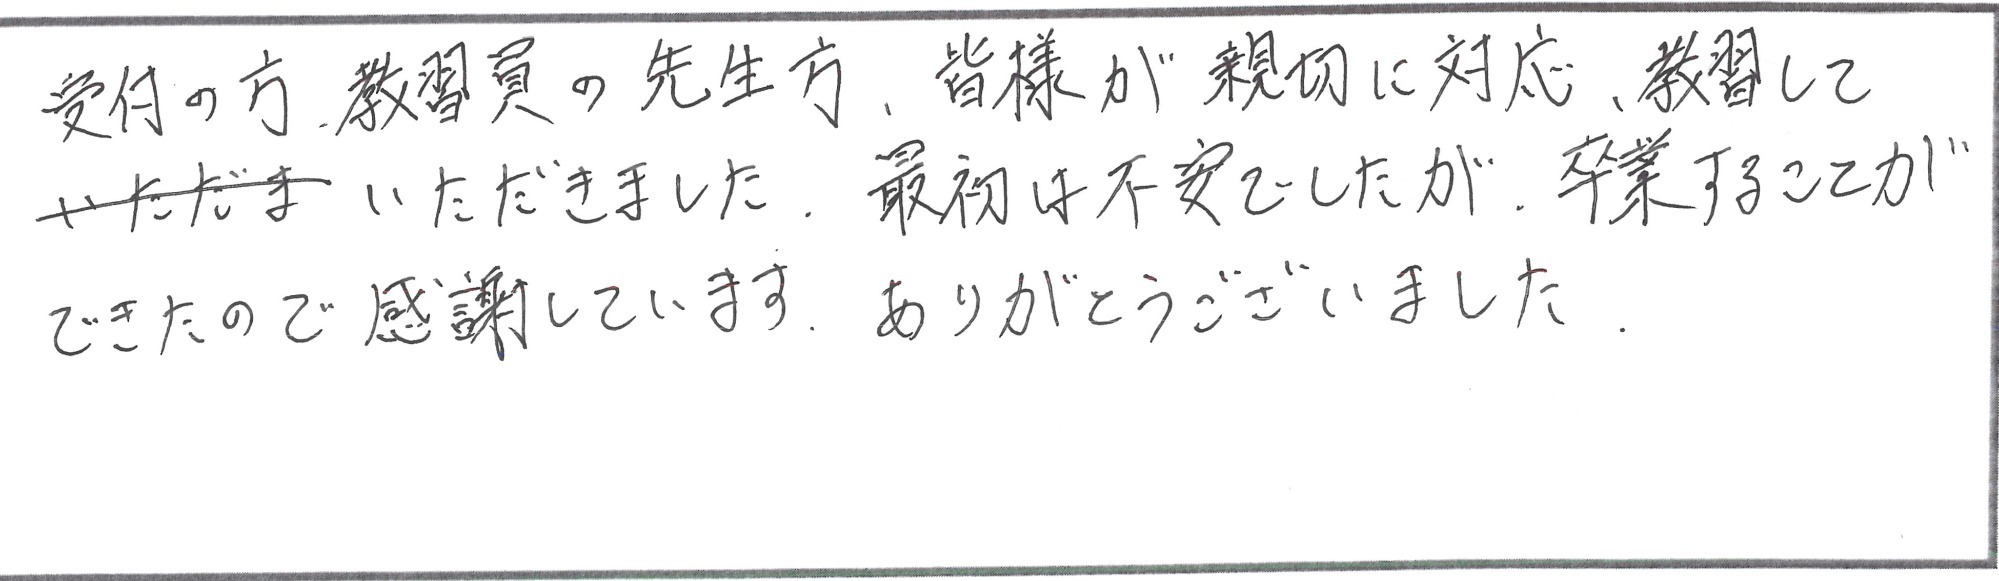 受付の方、教習員の先生方、皆様が親切に対応、教習して
いただま いただきました。最初は不安でしたが、卒業することが
できたので感謝しています。ありがとうございました。